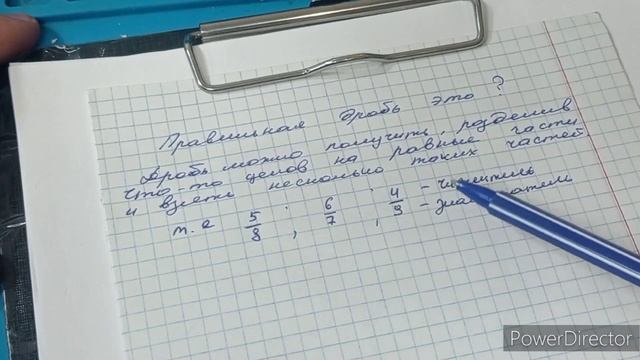 Правильная дробь это ?
Дробь можно получить, разделив
что-то целое на равные части
и взять несколько таких частей.
т. е 5/8, 6/7, 4/9 - числитель
- знаменатель
PowerDirector